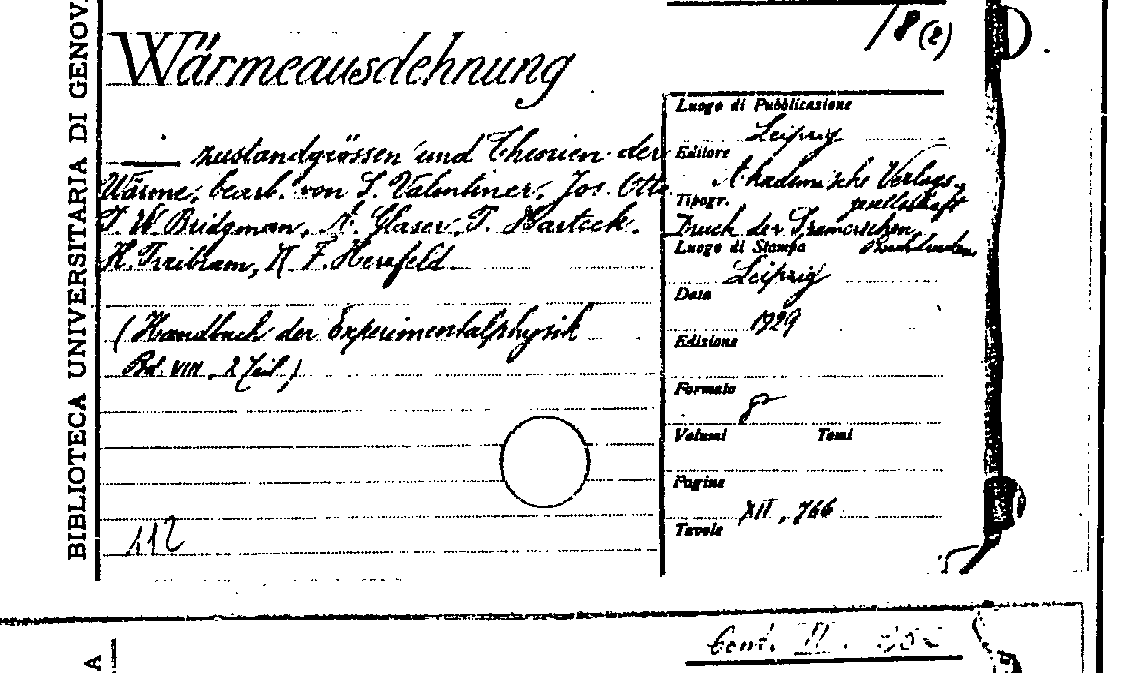 BIBLIOTECA UNIVERSITARIA DI GENOV
/8(2)
Wärmeausdehnung
— zustandgrössen und Theorien der
Wärme, bearb. von S. Valentiner, Jos. Otto
W. Bridgman, A. Glaser, P. Harteck.
H. F. Herzfeld
(Handbuch der Experimentalphysik
Bd. VIII. 2 Teil.)
112
Luogo di Pubblicazione
Leipzig
Editore
Akademische Verlags-
gesellschaft
Tipogr.
Druck der
Luogo di Stampa
Leipzig
Data
1929
Edizione
Formato
8°
Volumi Tomi
Pagine
XII, 766
Tavole
A